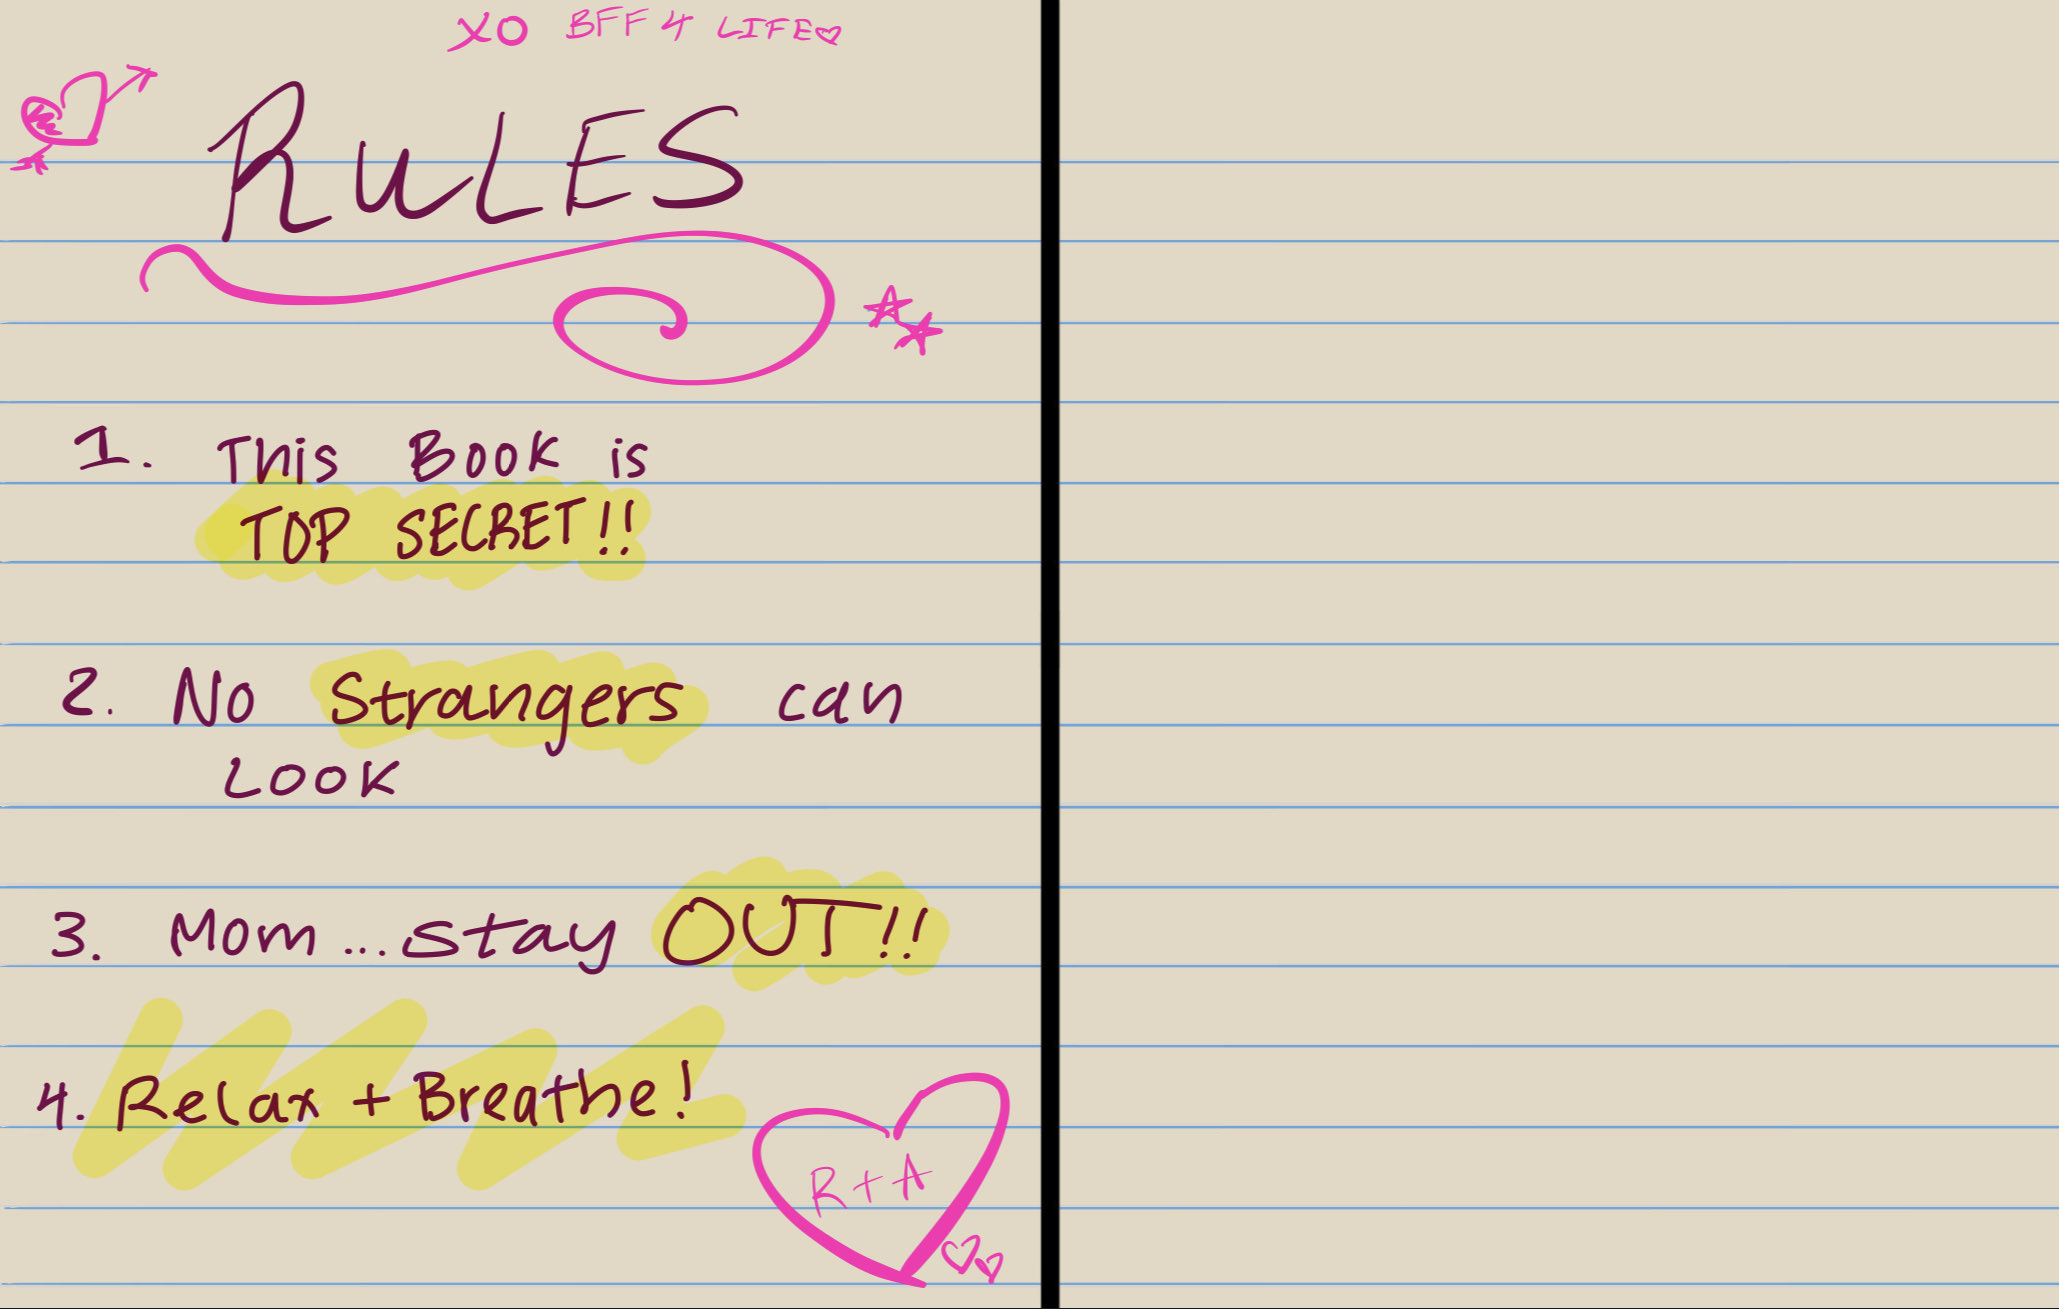 XO BFF 4 LIFE
RULES
1. This Book is
TOP SECRET!!
2. No Strangers can
LOOK
3. Mom...stay OUT!!
4. Relax + Breathe!
R+A